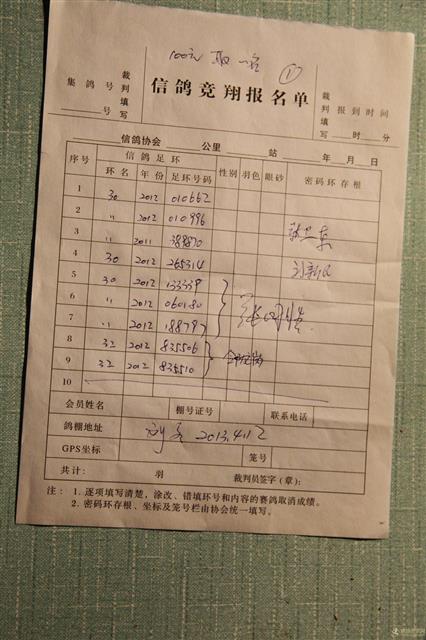 100元
①
集鸽号 裁判填写 信鸽竞翔报名单 裁判填写 报到时间
号 时 分
信鸽协会 公里 站 年 月 日
序号 信鸽足环 性别 羽色 眼砂 密码环存根
环名 年份 足环号码
1 30 2012 010662
2 〃 2012 010996
3 〃 2011 388870
4 30 2012 265314
5 30 2012 133339
6 〃 2012 060180
7 〃 2012 188797
8 32 2012 835506
9 32 2012 835510
10
会员姓名 棚号证号 联系电话
鸽棚地址 2013.4.12
GPS坐标 笼号
共计: 羽 裁判员签字(章):
注: 1. 逐项填写清楚,涂改、错填环号和内容的赛鸽取消成绩。
2. 密码环存根、坐标及笼号栏由协会统一填写。